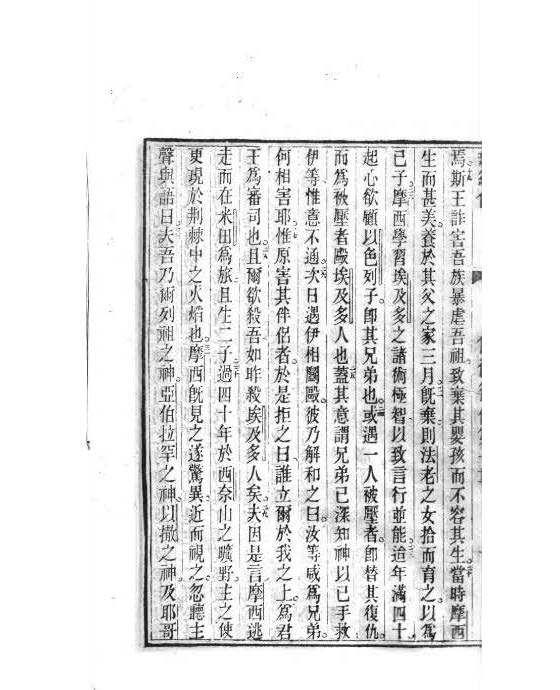 焉斯王詐害吾族暴虐吾祖致棄其嬰孩而不容其生當時摩西
生而甚美養於其父之家三月旣棄則法老之女拾而育之以爲
己子摩西學習埃及多之諸術極智以致言行並能迨年滿四十
起心欲顧以色列子卽其兄弟也或遇一人被壓者卽替其復仇
而爲被壓者毆埃及多人也蓋其意謂兄弟已深知神以己手救
伊等惟意不通次日遇伊相鬬毆彼乃解和之曰汝等咸爲兄弟
何相害耶惟原害其伴侶者於是拒之曰誰立爾於我之上爲君
王爲審司也且爾欲殺吾如昨殺埃及多人矣夫因是言摩西逃
走而在米田爲旅且生二子過四十年於西奈山之曠野主之使
更現於荆棘中之火焰也摩西旣見之遂驚異近而視之忽聽主
聲與語曰夫吾乃爾列祖之神亞伯拉罕之神以撒之神及耶哥